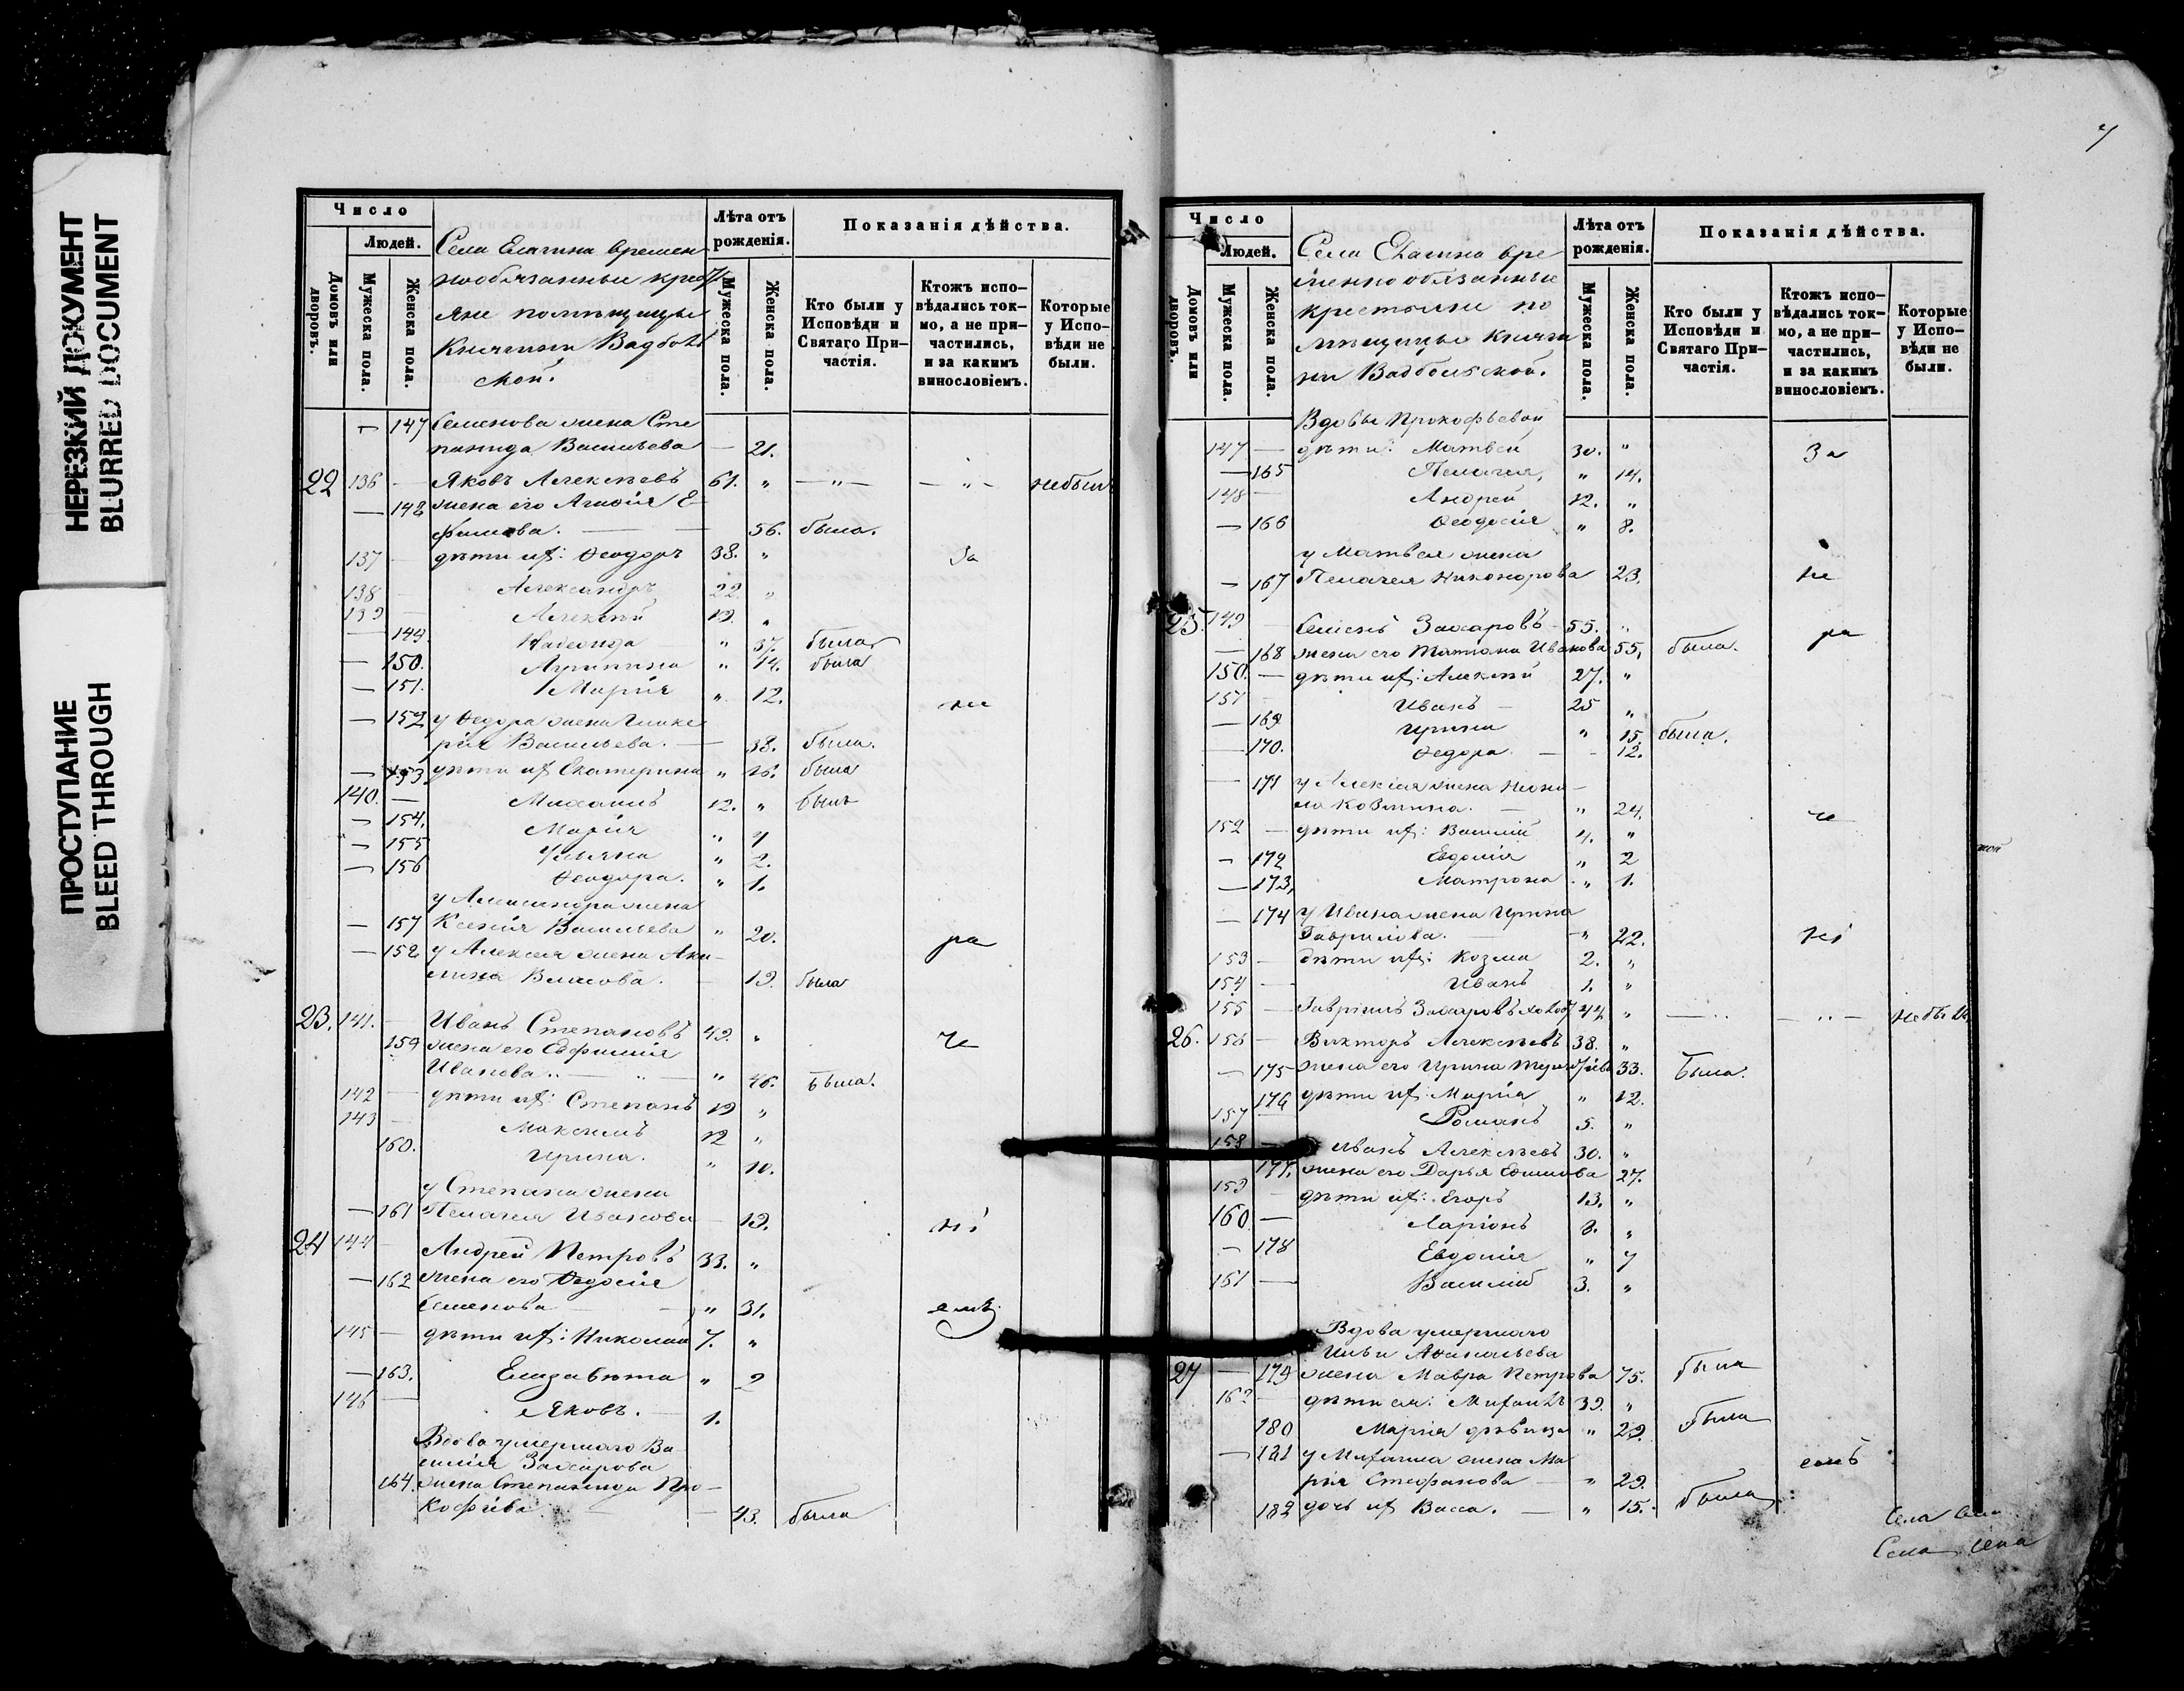 НЕРЕЗКИЙ ДОКУМЕНТ
BLURRED DOCUMENT
ПРОСТУПАНИЕ
BLEED THROUGH
Число
Людей.
Домовъ или дворовъ.
Мужеска пола.
Женска пола.
Села Елагина времен
нообязанные крест
яне помѣщицы
Княгини Вадболь
ской.
Лѣта отъ рожденія.
Мужеска пола.
Женска пола.
Показанія дѣйства.
Кто были у Исповѣди и Святаго Причастія.
Ктожъ исповѣдались токмо, а не причастились, и за какимъ винословіемъ.
Которые у Исповѣди не были.
— 147 Семенова жена Сте
панида Васильева — 21.
22 136 — Яковъ Алексѣевъ 61. " — " — — " — небылъ
— 148 жена его Агафія Е
фимова. — 56. была.
137 — дѣти их: Ѳеодоръ 38. " За
138 — Александръ 22. "
139 — Алексѣй 19. "
— 149 Надежда " 37. была
— 150. Агрипина " 14. была
— 151. Марія " 12. не
— 152 у Ѳедора жена Глике
рія Васильева. — 38. была.
— 153 дѣти их Екатерина " 16. была
140. — Михаилъ 12. " былъ
— 154. Марія " 7
— 155 Ульяна " 2.
— 156 Ѳеодора. " 1.
у Александра жена
— 157 Ксенія Васильева " 20. ра
— 158 у Алексея жена Аку
лина Власова. — 19. была
23. 141. — Иванъ Степановъ 49. " че
159 жена его Евфимія
Иванова. — " — " 46. была.
142 — дѣти их: Степанъ 19 "
143 — Максимъ 12 "
160. Ирина. " 10.
у Степана жена
— 161 Пелагея Иванова — 19. ні
24 144 — Андрей Петровъ 33. "
— 162 жена его Ѳедосія
Семенова — " 31. емъ.
145 — дѣти их: Николай 7. "
— 163. Елизавета " 2
146 — Яковъ. — 1.
Вдова умершаго Ва
силія Захарова
164. жена Степанида Про—
кофьева — 43. была
7
Число
Людей.
Домовъ или дворовъ.
Мужеска пола.
Женска пола.
Села Елагина вре
менно обязанные
крестьяне по
мѣщицы Княги
ни Вадбольской.
Лѣта отъ рожденія.
Мужеска пола.
Женска пола.
Показанія дѣйства.
Кто были у Исповѣди и Святаго Причастія.
Ктожъ исповѣдались токмо, а не причастились, и за какимъ винословіемъ.
Которые у Исповѣди не были.
Вдовы Прокофьевой
147 — дѣти: Матвей 30. " За
— 165 Пелагея, " 14.
148 — Андрей 12. "
— 166 Ѳеодосія " 8.
у Матвея жена
— 167 Пелагея Никонорова 23. не
25. 149 — Семенъ Захаровъ 55. " ра
— 168 жена его Татіана Иванова 55. была.
150. — дѣти их: Алексѣй 27. "
151 — Иванъ — 25 "
— 169 Ирина " 15. была.
— 170. Ѳедора. — - 12.
— 171 у Алексія жена Неони
ла Козмина. — " 24. че
152 — дѣти их: Василій 4. "
— 172 Евдокія " 2
— 173, Матрона " 1.
— 174 у Ивана жена Ирина
Гаврилова. — " 22. ні
153 — дѣти их: Козма 2. "
154 — Иванъ 1. "
155 — Гавріилъ Захаровъ холост 44 " — " — " — не былъ
26. 156 — Викторъ Алексѣевъ 38. "
— 175 жена его Ирина 33. Была.
176 дѣти их: Марія " 12.
157 — Романъ 5. "
158 — Иванъ Алексѣевъ 30. "
177. жена его Дарья Ефимова 27.
159 — дѣти их: Егоръ 13. "
160 — Ларіонъ 8. "
— 178 Евдокія " 7
161 — Василій 3. "
Вдова умершаго
Ильи Аѳанасьева
27 — 179 жена Мавра Петрова 75. была
162 — дѣти ея: Михаилъ 39. "
180 Марія дѣвица " 29. была
— 181 у Михаила жена Ма
рія Стефанова — " 29. емъ
182 дочь их Васса. — " 15. была
Села
Села